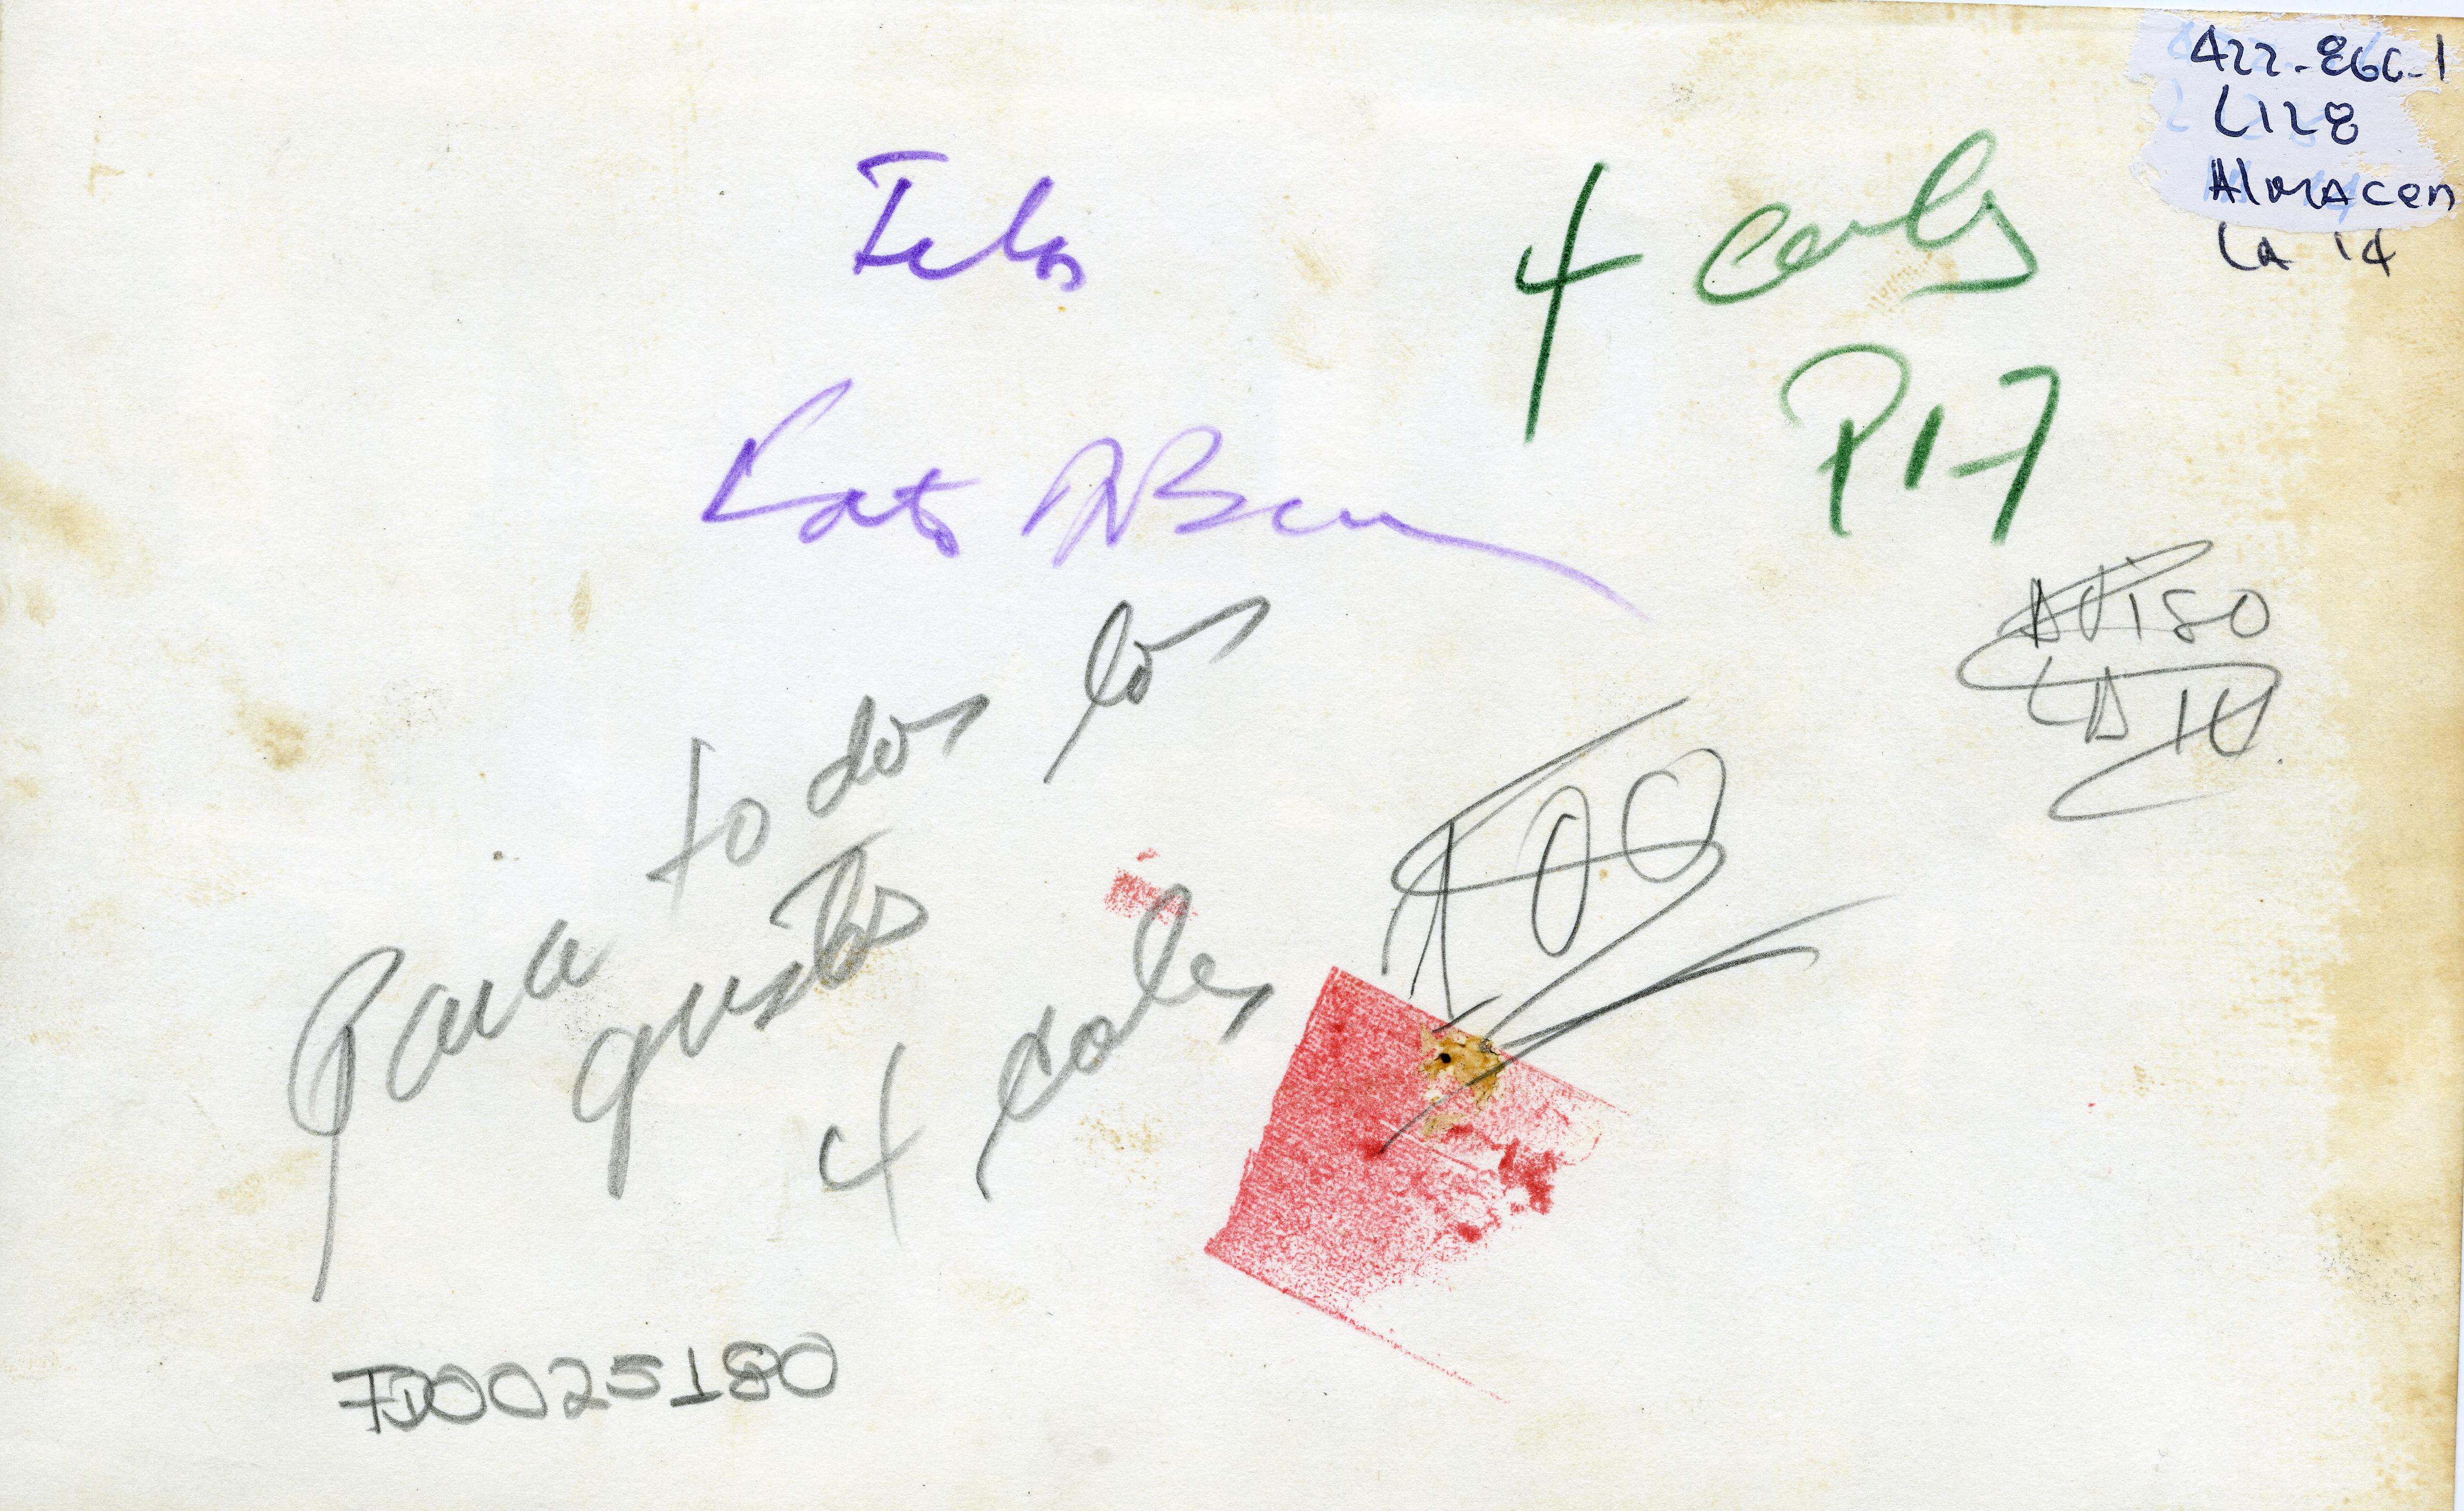 422-866-1
L128
Almacen
La 14
4 cols
P17
AViso
LA 14
Para todos los
gustos
4 cols
100
FD0025180